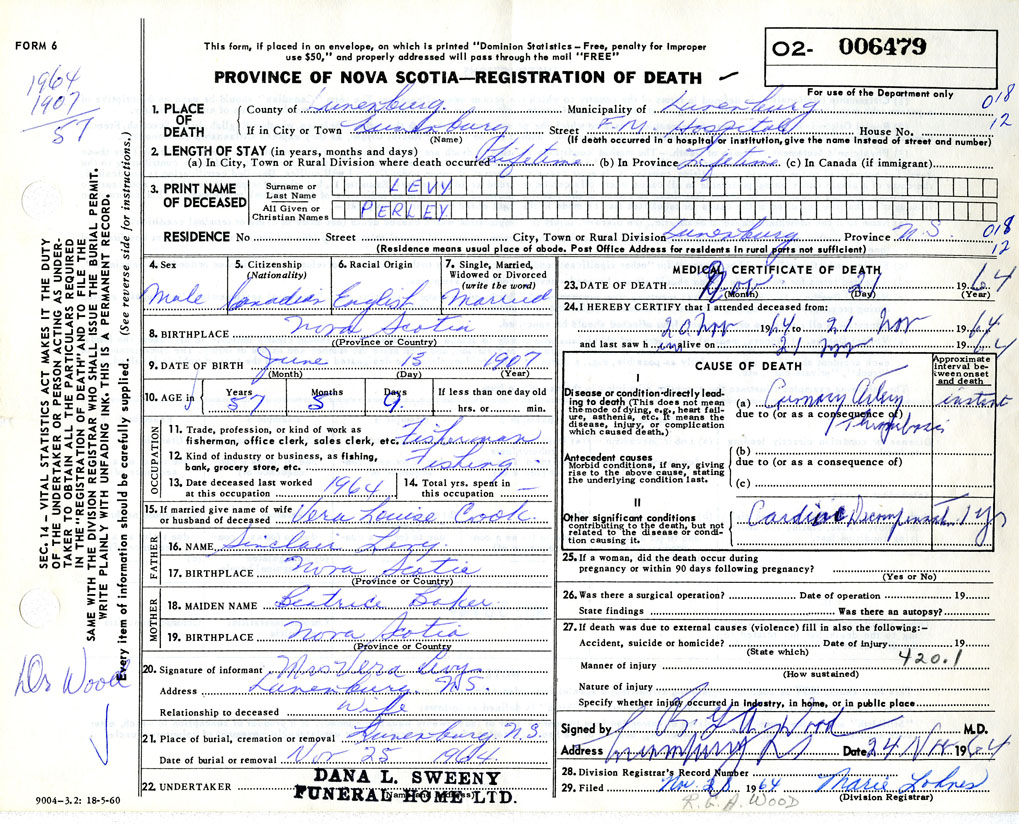 FORM 6
This form, if placed in an envelope, on which is printed "Dominion Statistics – Free, penalty for improper
use $50," and properly addressed will pass through the mail "FREE"
O2- 006479
For use of the Department only
PROVINCE OF NOVA SCOTIA—REGISTRATION OF DEATH
1964
1907
57
018
12
1. PLACE OF DEATH
County of Lunenburg Municipality of Lunenburg
If in City or Town Lunenburg Street F.M. Hospital House No.
(Name) (If death occurred in a hospital or institution, give the name instead of street and number)
2. LENGTH OF STAY (in years, months and days)
(a) In City, Town or Rural Division where death occurred Lifetime (b) In Province Lifetime (c) In Canada (if immigrant)
3. PRINT NAME OF DECEASED
Surname or Last Name LEVY
All Given or Christian Names PERLEY
RESIDENCE No Street City, Town or Rural Division Lunenburg Province N.S.
018
12
(Residence means usual place of abode. Post Office Address for residents in rural parts not sufficient)
4. Sex Male
5. Citizenship (Nationality) Canadian
6. Racial Origin English
7. Single, Married, Widowed or Divorced (write the word) Married
8. BIRTHPLACE Nova Scotia
(Province or Country)
9. DATE OF BIRTH June 13 1907
(Month) (Day) (Year)
10. AGE in Years 57 Months 5 Days 9 If less than one day old
hrs. or min.
OCCUPATION
11. Trade, profession, or kind of work as
fisherman, office clerk, sales clerk, etc. Fisherman
12. Kind of industry or business, as fishing,
bank, grocery store, etc. Fishing
13. Date deceased last worked
at this occupation 1964
14. Total yrs. spent in
this occupation –
15. If married give name of wife
or husband of deceased Vera Louise Cook
FATHER
16. NAME Sinclair Levy
17. BIRTHPLACE Nova Scotia
(Province or Country)
MOTHER
18. MAIDEN NAME Beatrice Baker
19. BIRTHPLACE Nova Scotia
(Province or Country)
20. Signature of informant Mrs Vera Levy
Address Lunenburg N.S.
Relationship to deceased Wife
21. Place of burial, cremation or removal Lunenburg N.S.
Date of burial or removal Nov 25 1964
22. UNDERTAKER DANA L. SWEENY
FUNERAL HOME LTD.
(Name and address)
9004–3.2: 18-5-60
MEDICAL CERTIFICATE OF DEATH
23. DATE OF DEATH Nov 21 1964
(Month) (Day) (Year)
24. I HEREBY CERTIFY that I attended deceased from:
20 Nov 1964 to 21 Nov 1964
and last saw him alive on 21 Nov 1964
CAUSE OF DEATH
Approximate interval between onset and death
I
Disease or condition directly leading to death (This does not mean
the mode of dying, e.g., heart failure, asthma, etc. It means the
disease, injury, or complication
which caused death.)
(a) Coronary Artery instant
due to (or as a consequence of)
Thrombosis
Antecedent causes
Morbid conditions, if any, giving
rise to the above cause, stating
the underlying condition last.
(b)
due to (or as a consequence of)
(c)
II
Other significant conditions
contributing to the death, but not
related to the disease or condition causing it.
Cardiac Decompensation 1 yr
25. If a woman, did the death occur during
pregnancy or within 90 days following pregnancy?
(Yes or No)
26. Was there a surgical operation? Date of operation 19
State findings Was there an autopsy?
27. If death was due to external causes (violence) fill in also the following:–
Accident, suicide or homicide? Date of injury 19
(State which)
420.1
Manner of injury
(How sustained)
Nature of injury
Specify whether injury occurred in industry, in home, or in public place
Signed by Wood M.D.
Address Lunenburg NS Date 24 Nov 1964
28. Division Registrar's Record Number
29. Filed Nov. 1964 Marie Lohnes
(Division Registrar)
R.G.A. WOOD
SEC. 14 – VITAL STATISTICS ACT MAKES IT THE DUTY
OF THE UNDERTAKER OR PERSON ACTING AS UNDERTAKER TO OBTAIN ALL THE PARTICULARS REQUIRED
IN THE "REGISTRATION OF DEATH" AND TO FILE THE
SAME WITH THE DIVISION REGISTRAR WHO SHALL ISSUE THE BURIAL PERMIT.
WRITE PLAINLY WITH UNFADING INK. THIS IS A PERMANENT RECORD.
Every item of information should be carefully supplied. (See reverse side for instructions.)
Drs Wood